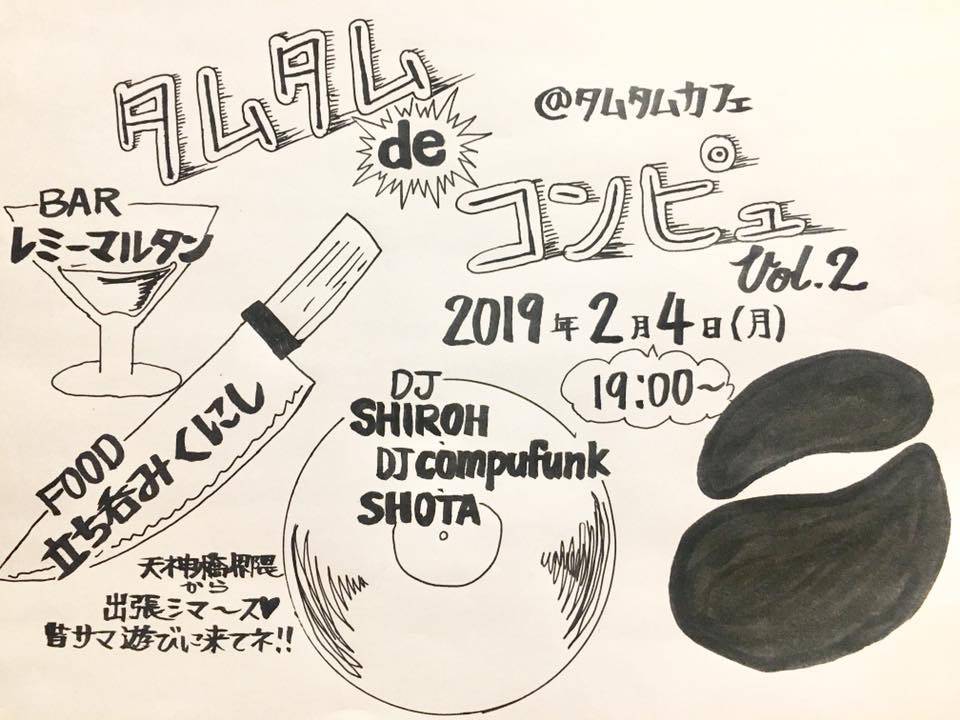 タムタム
de
コンピュ
Vol.2
@タムタムカフェ
2019年2月4日(月)
19:00〜
BAR
レミーマルタン
FOOD
立ち呑みくにし
DJ
SHIROH
DJ compufunk
SHOTA
天神橋界隈
から
出張シマ〜ス♥
皆サマ遊びに来てネ!!